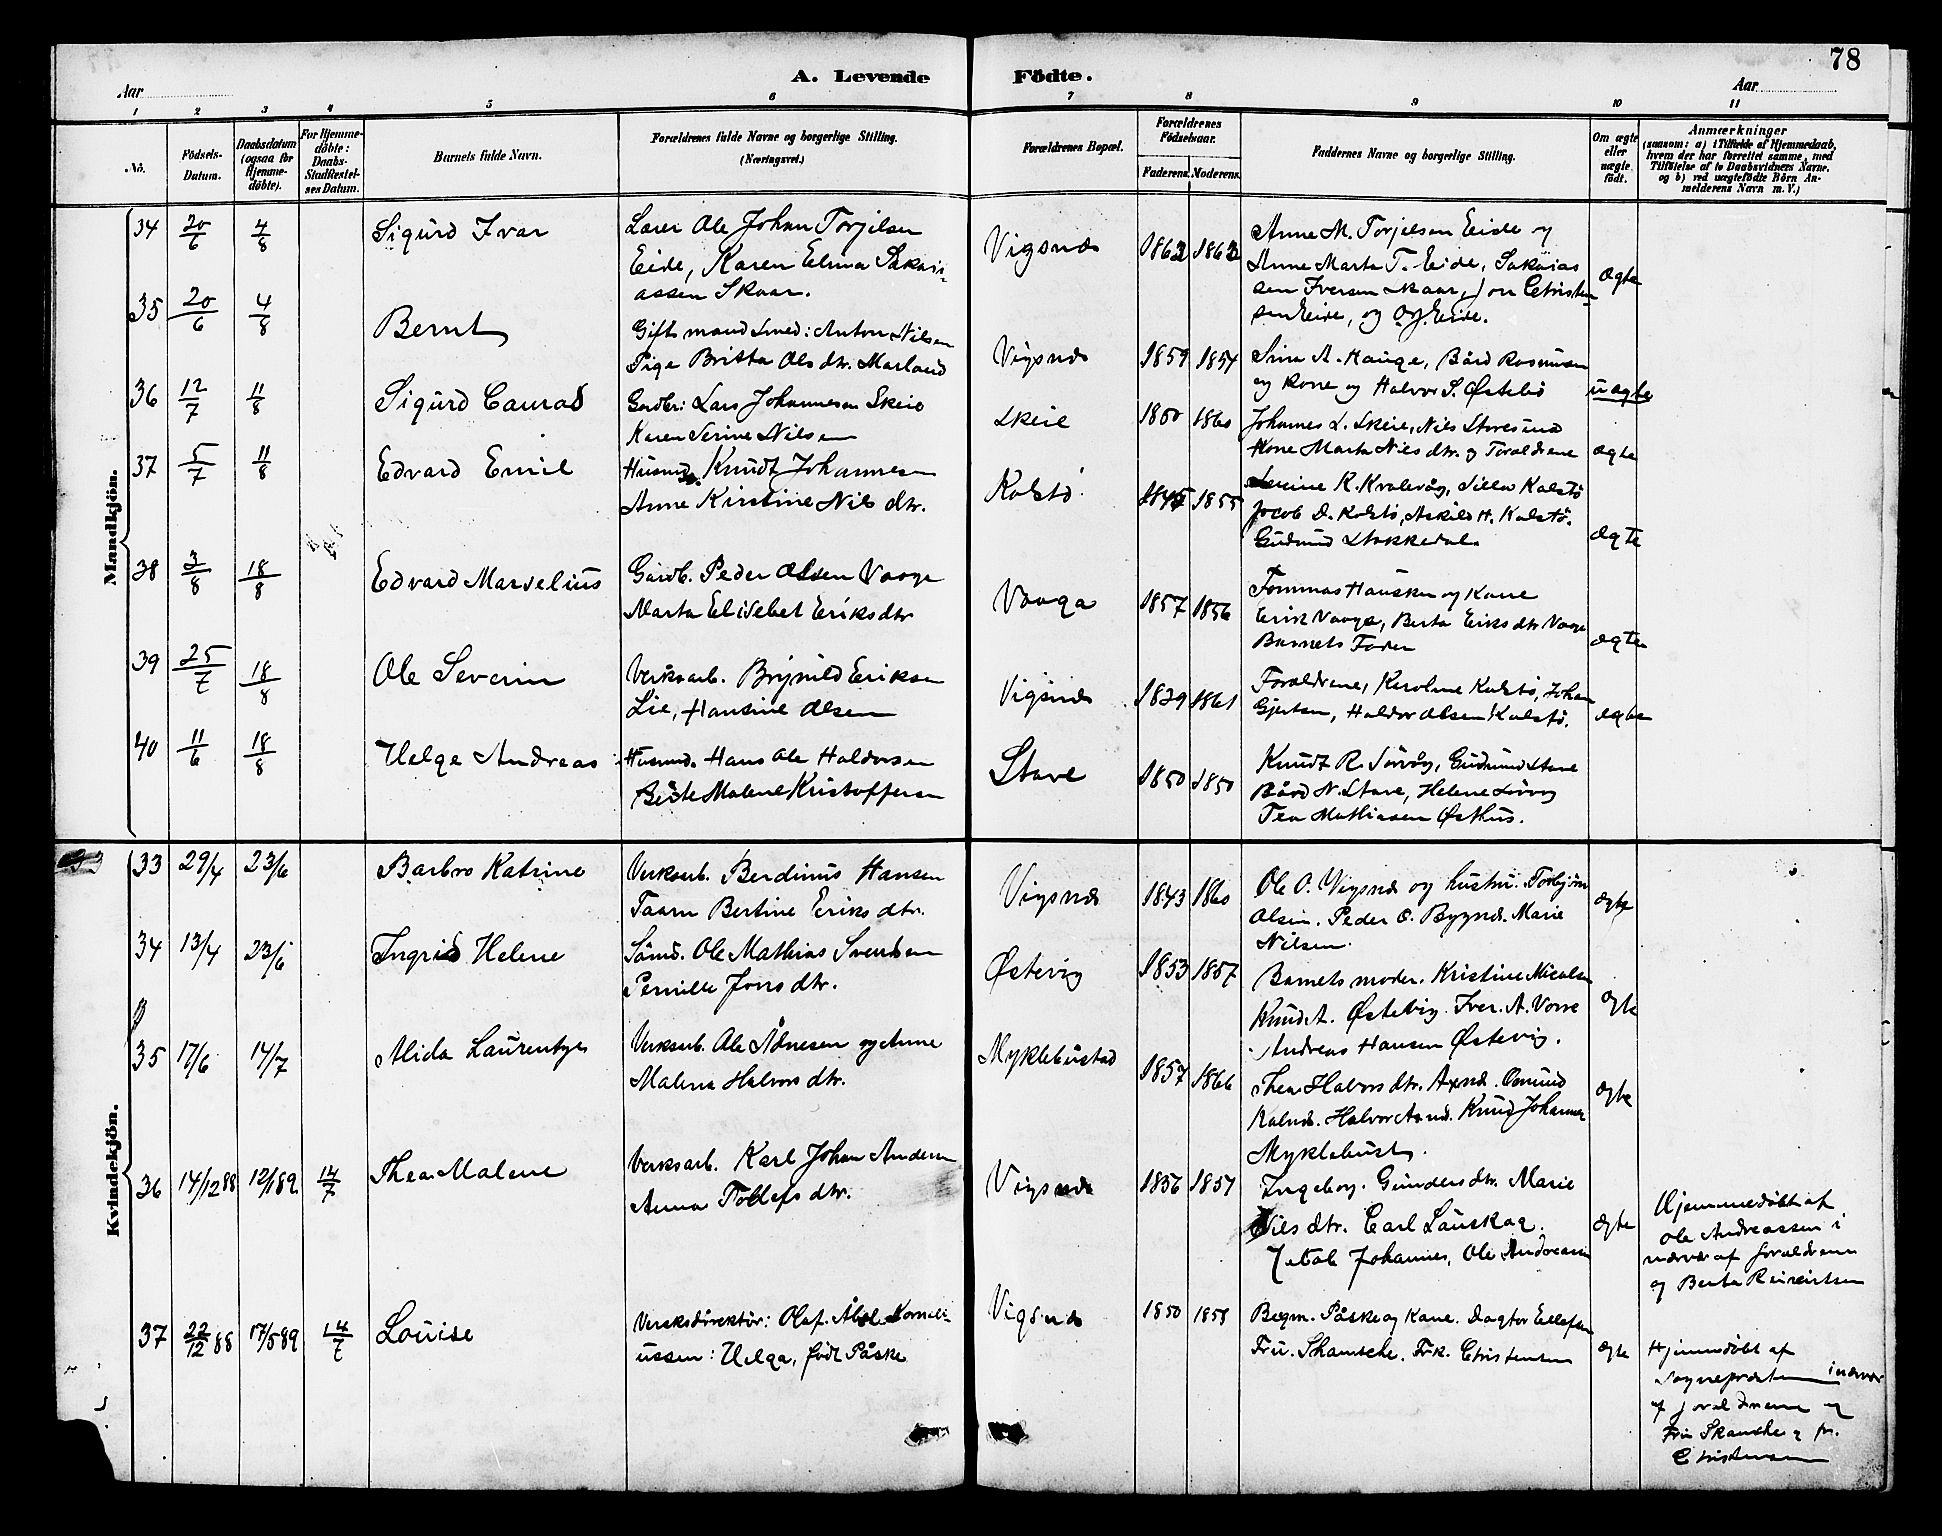 78
A. Levende Födte.
Aar
Aar
1 2 3 4 5 6 7 8 9 10 11
No.
Födsels-Datum.
Daabsdatum (ogsaa for Hjemme-döbte).
For Hjemme-döbte: Daabs-Stadfæstel-ses Datum.
Barnets fulde Navn.
Forældrenes fulde Navne og borgerlige Stilling.
(Næringsvei.)
Forældrenes Bopæl.
Forældrenes Födselsaar.
Faderens. Moderens.
Faddernes Navne og borgerlige Stilling.
Om ægte eller uægte födt.
Anmærkninger
(saasom: a) i Tilfælde af Hjemmedaab,
hvem der har forrettet samme, med
Tilföielse af to Daabsvidners Navne.
og b) ved uægtefödte Börn An-
melderens Navn m. V.)
Mandkjön.
34 20/6 4/8 Sigurd Ivar
Lærer Ole Johan Torjilsen
Eide, Karen Elina Sakari-
assen Skaar.
Vigsnes 1862 1862
Anne M. Torjelsen Eide og
Anne Marta T. Eide, Sakaias
sen Iversen Skaar, Jon Christen
sen Eide, og O.J. Eide.
ægte
35 20/6 4/8 Bernt
Gift mand Smed: Anton Nilsen
Pige Britta Olsdtr. Marland
Vigsnes 1859 1854
Sina A. Hauge, Bård Rasmusen
og Kone og Halvor S. Østebö
uægte
36 12/7 11/8 Sigurd Conrad
Gardbr: Lars Johannesen Skeie
Karen Serine Nilsen
Skeie 1850 1860
Johannes L. Skeie, Nils Storesund
Kone Marta Nilsdtr. og Foraldrene
ægte
37 5/7 11/8 Edvard Emil
Husmd. Knudt Johannesen
Anne Kirstine Nilsdtr.
Kolstö 1845 1855
K. Kvalevåg, Kalstö
Jacob D. Kolstö, Askild H. Kalstö.
Gudmund Stakkedal.
ægte
38 3/8 18/8 Edvard Marselius
Gårdb. Peder Olsen Vaage
Marta Elisebet Eriksdtr
Vaaga 1857 1856
Tommas Hausken og Kone
Erik Vaage, Berta Eriksdtr Vaage
Barnets Fader
ægte
39 25/7 18/8 Ole Severin
Verksarb. Brynild Eriksen
Lie, Hansine Olsen
Vigsnes 1829 1861
Foraldrene, Karoline Kalstö, Johan
Gjertsen, Haldor Olsen Kalstö.
ægte
40 11/6 18/8 Helge Andreas
Husmd. Hans Ole Haldorsen
Berte Malene Kristoffersen
Stave 1850 1850
Knudt R. Sörvåg, Gudmund Stave
Bård N. Stave, Helene Sörvåg
Tea Mathiasen Østhus.
Kvindekjön.
33 29/4 23/6 Barbro Katrine
Verksarb. Berdinus Hansen
Taarn Bertine Eriksdtr.
Vigsnes 1843 1860
Ole O. Vigsnes og hustru. Torbjörn
Olsen. Peder O. Bygnes. Marie
Nilsen.
ægte
34 13/4 23/6 Ingrid Helene
Sömd. Ole Mathias Svendsen
Pernille Jonsdtr.
Østevig 1853 1857
Barnets moder. Kristine Micalsen
Knud A. Østevig. Iver A. Vorre
Andreas Hansen Østevig.
ægte
35 17/6 14/7 Alida Laurentze
Verksarb. Ole Ådnesen og Anne
Malena Halvorsdtr.
Myklebustad 1857 1866
Thea Halvorsdtr. Axnes. Osmund
Kalnes. Halvor Axnes. Knud Johannes
Myklebust.
ægte
36 14/12 88 12/1 89 14/7 Thea Malene
Verksarb. Karl Johan Andersen
Anna Tollefsdtr.
Vigsnes 1856 1857
Ingeborg. Gundersdtr. Marie
Nilsdtr. Carl Lauskag.
Johannes, Ole Andreassen
ægte
Hjemmedöbt af
Ole Andreassen i
nærvær af foraldrene
og Berta Reinertsen
37 22/12 88 17/5 89 14/7 Louise
Verksdirektör: Olaf Åbel Korneli-
ussen: Helga, född Påske
Vigsnes 1850 1858
Begm. Påske og Kone. Dagtor Ellefsen
Fru. Skanche. Frk. Christensen
ægte
Hjemmdöbt af
Sognepræsten i nærvær
af foraldrene og
Fru Skanche og fr.
Christensen